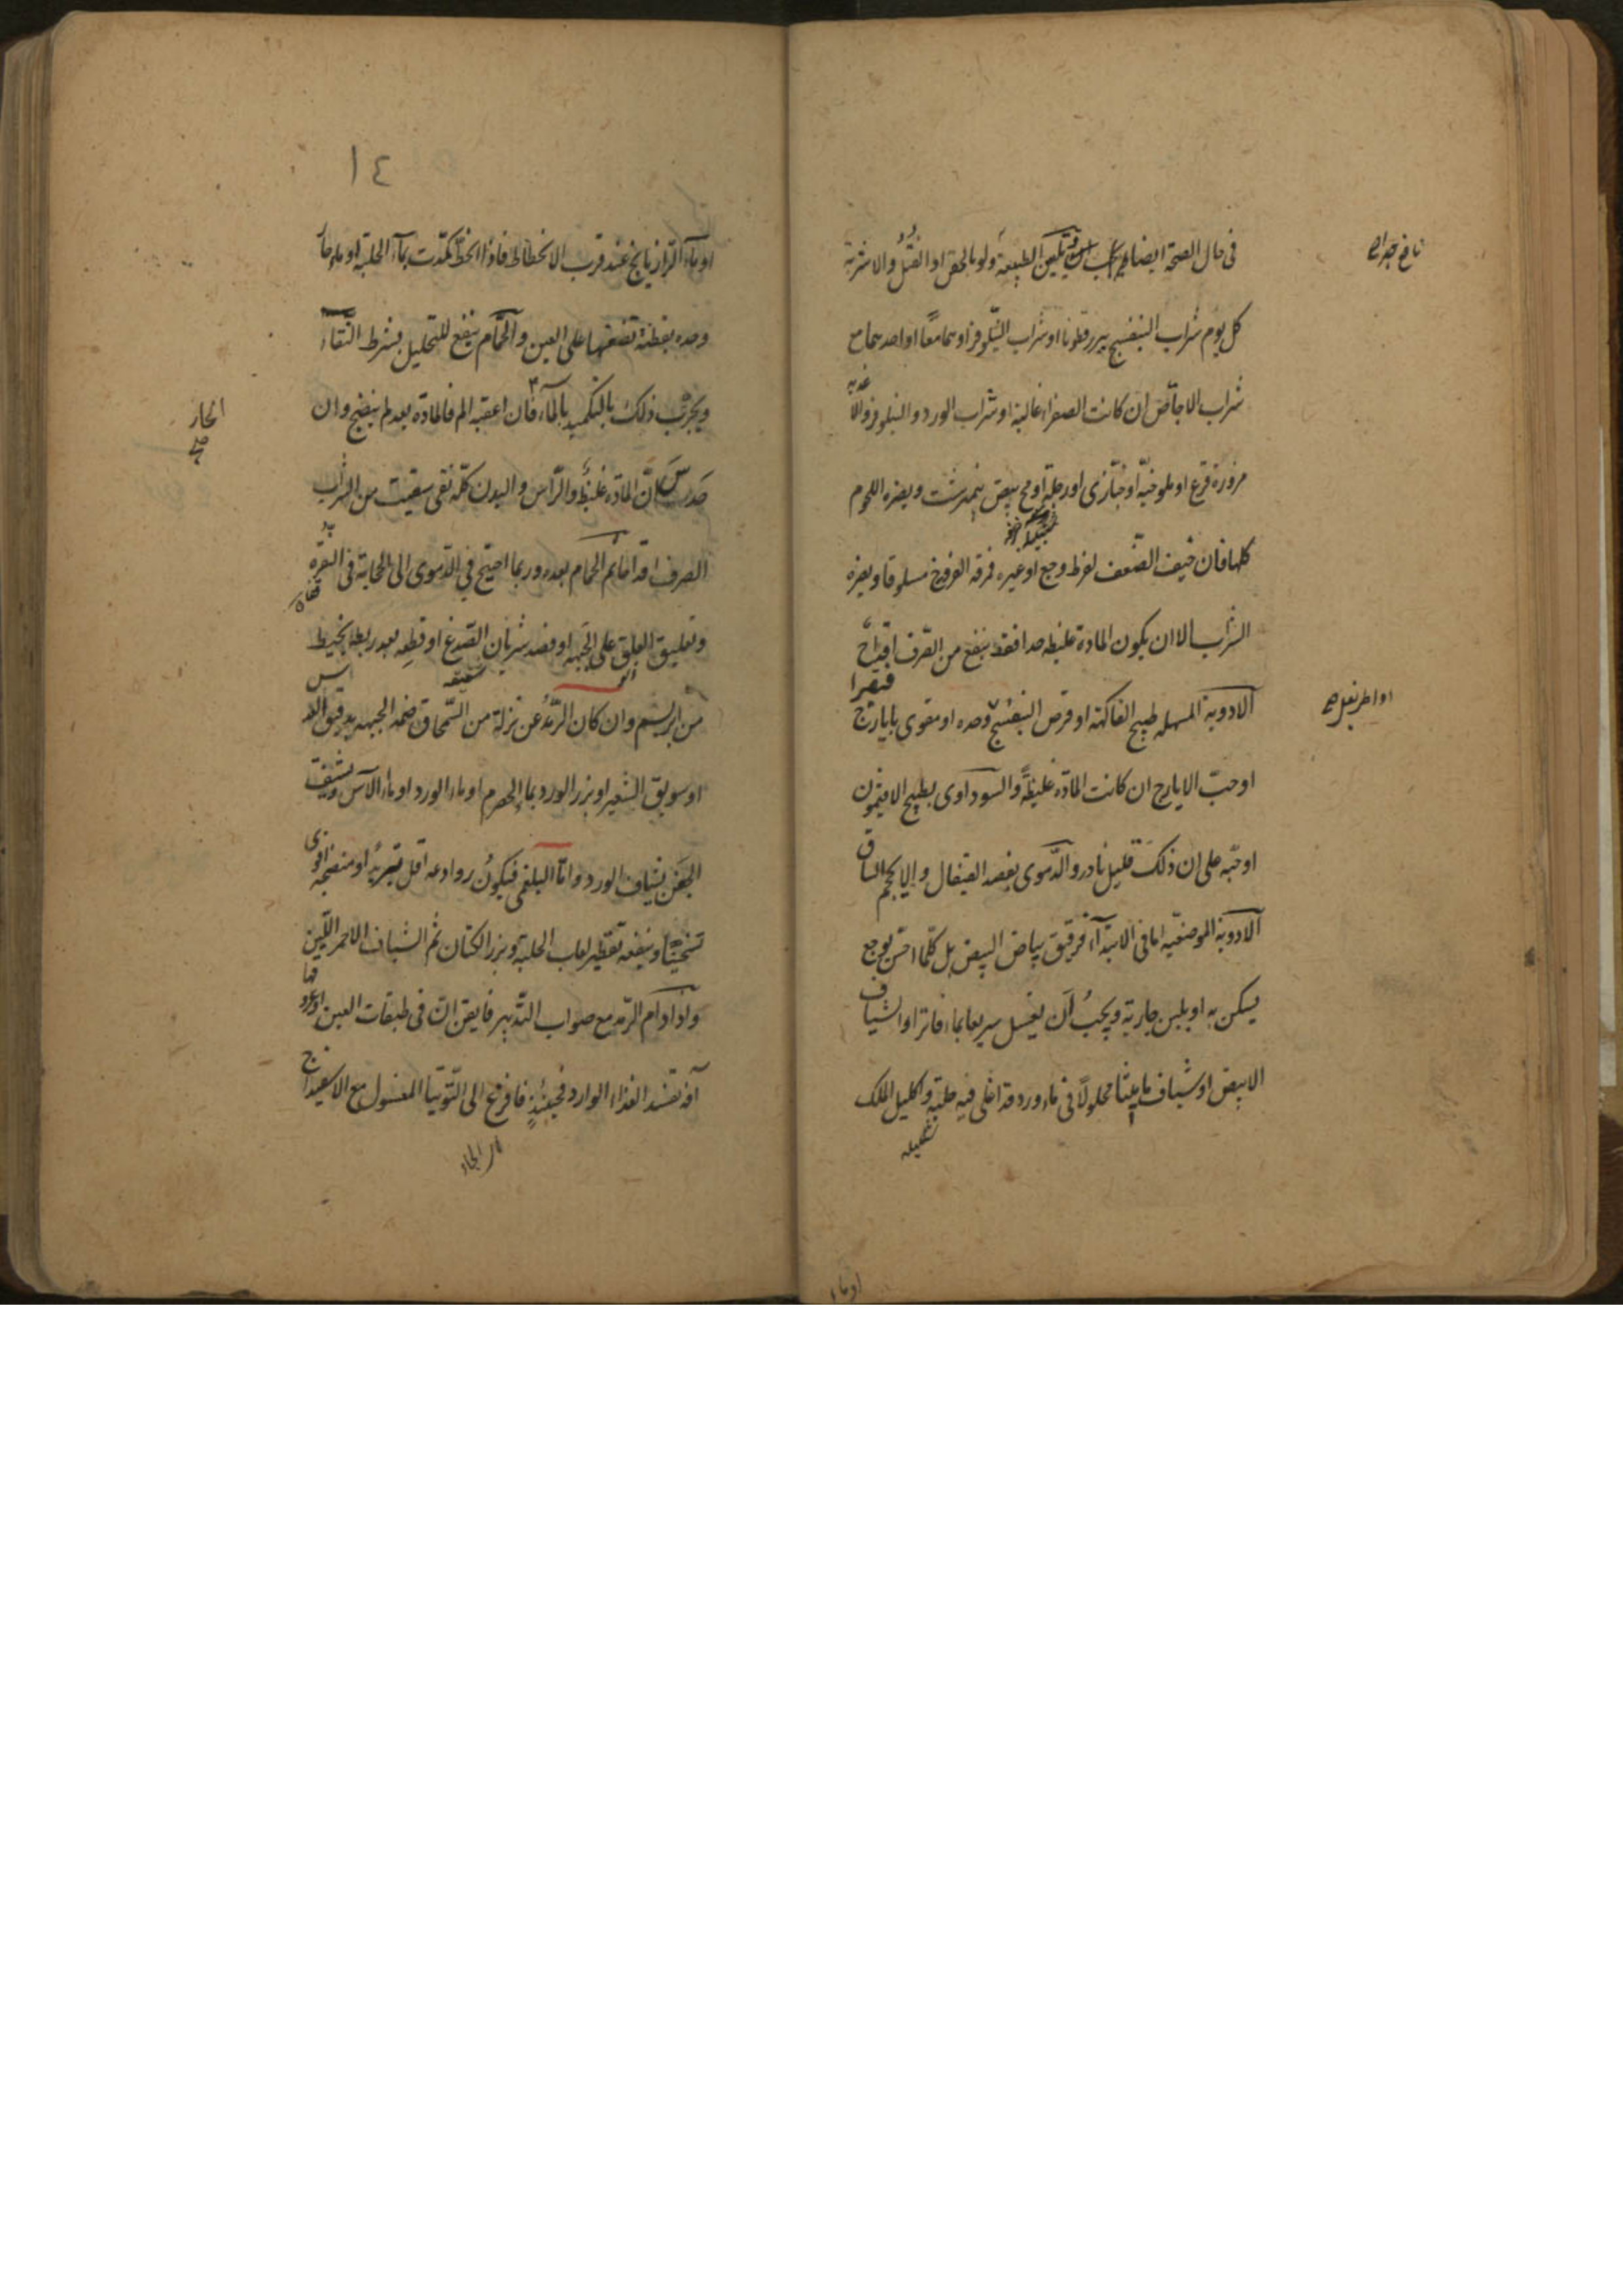 في حال الصحة ايضا يجب تليين الطبيعة ولو بالحقن او الفتل والاشربة
نافع جدا صح
كل يوم شراب البنفسج ببزرقطونا او شراب النيلوفر او هما معا او احدهما مع
شراب الاجاص ان كانت الصفراء غالبة او شراب الورد والنيلوفر والاغذية
مزورة قرع او ملوخية او خبازى او رجلة او مح بيض نيمرشت ويضره اللحوم
كلها فان خيف الضعف لفرط وجع او غيره فمرقة الفروج مسلوقا ويضره
الشراب الا ان يكون المادة غليظة جدا فقد ينفع من الصرف اقداح
الادوية المسهلة طبيخ الفاكهة او قرص البنفسج وحده او مقوى بايارج فيقرا
او اطريفل صح
او حب الايارج ان كانت المادة غليظة والسوداوى بطبيخ الافتيمون
او حبه على ان ذلك قليل نادر والدموى بفصد القيفال والا بحجم الساق
الادوية الموضعية اما في الابتداء فرقيق بياض البيض بل كلما احس بوجع
يسكن به او بلبن جارية ويجب ان يغسل سريعا بماء فاتر او الشياف
الابيض او شياف ماميثا محلولا في ماء ورد قد اغلى فيه حلبة واكليل الملك
او ماء
١٤
او ماء الرازيانج عند قرب الانحطاط فاذا انحط كمدت بماء الحلبة او ماء حار
وحده بقطنة تضعها على العين والحمام ينفع للتحليل بشرط النقاء
ويجرب ذلك بالتكميد بالماء فان اعقبه الم فالمادة بعد لم ينضج وان
الحار صح
حدس ان المادة غليظة والراس والبدن كله نقى سقيت من الشراب
الصرف اقداحا ثم الحمام بعده وربما احتيج في الدموى الى الحجامة في النقرة
وتعليق العلق على الجبهة او فصد شريان الصدغ او قطعه بعد ربطه بخيط
من ابريسم وان كان الرمد عن نزلة من السمحاق ضمد الجبهة بدقيق العدس
او سويق الشعير او بزر الورد بماء الحصرم او ماء الورد او ماء الآس وشيف
الجفن بشياف الورد واما البلغمى فيكون روادعه اقل تبريدا ومنضجه اقوى
تسخينا وينفعه تقطير لعاب الحلبة وبزر الكتان ثم الشياف الاحمر اللين
واذا دام الرمد مع صواب التدبير فايقن ان في طبقات العين
آفة تفسد الغذاء الوارد فحينئذ فافزع الى التوتيا المغسول مع الاسفيداج